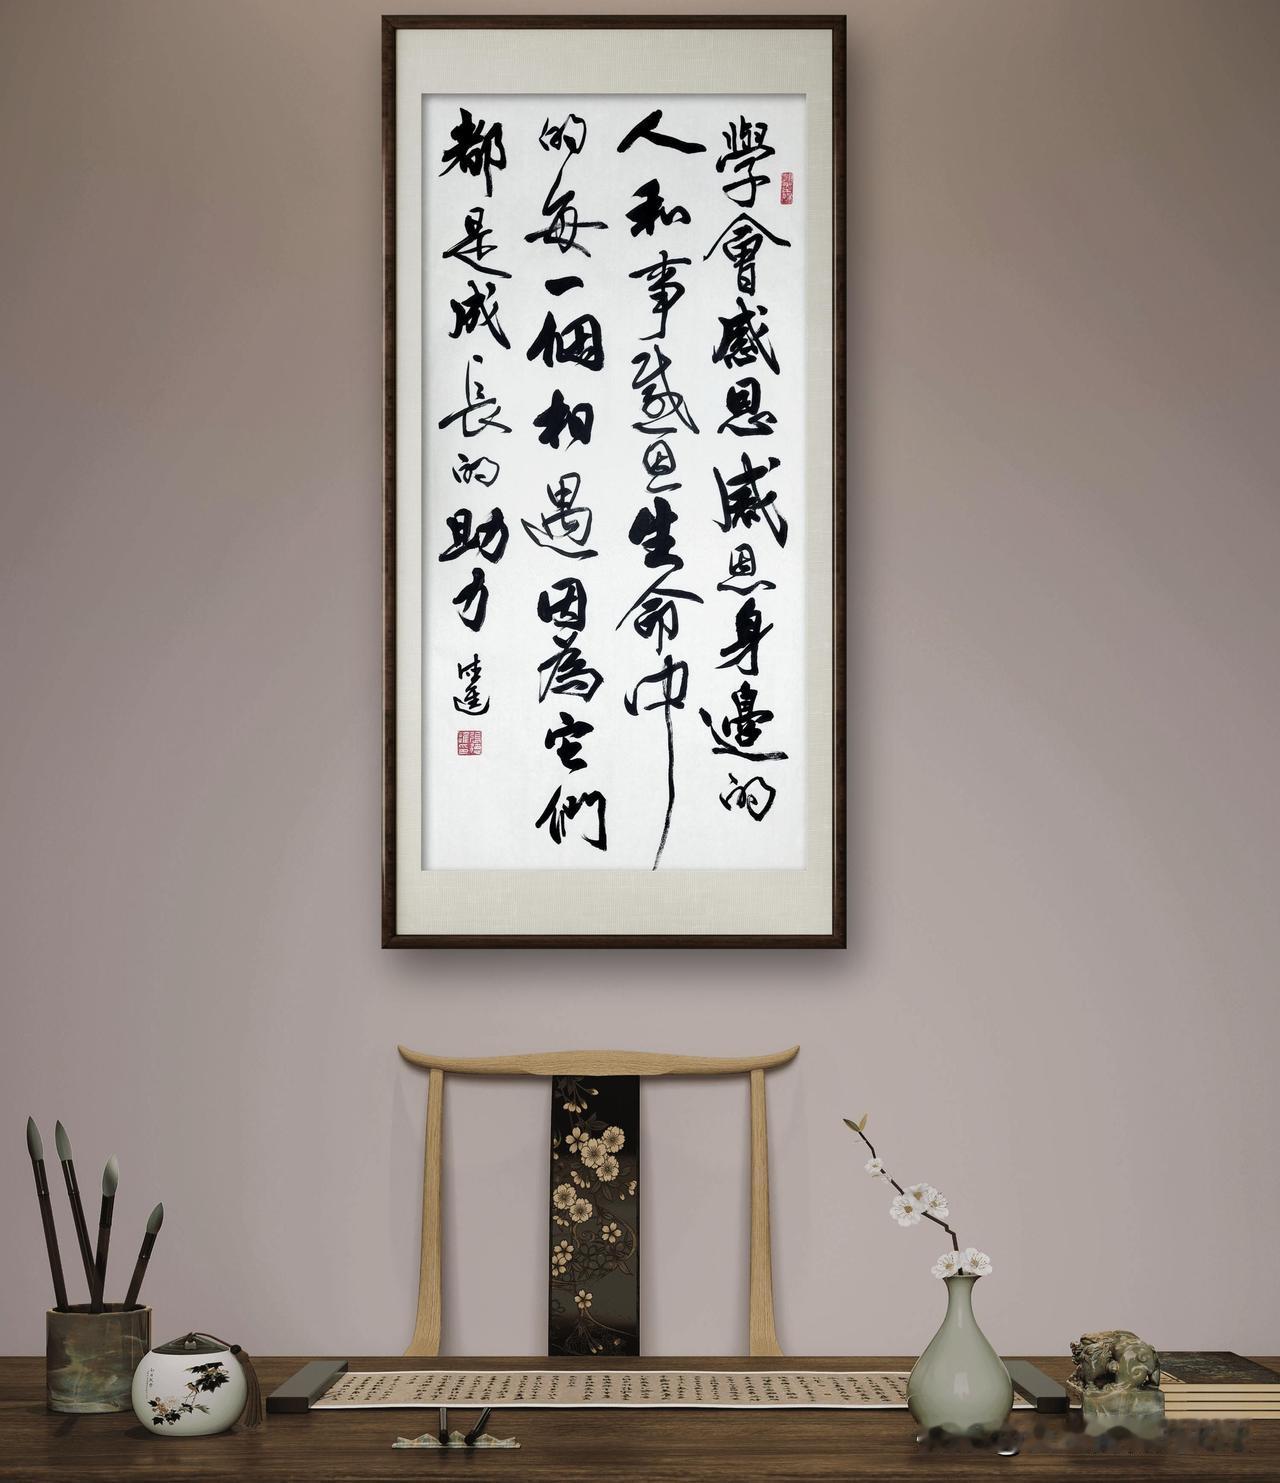 學會感恩感恩身邊的
人和事感恩生命中
的每一個相遇因為它們
都是成長的助力
進